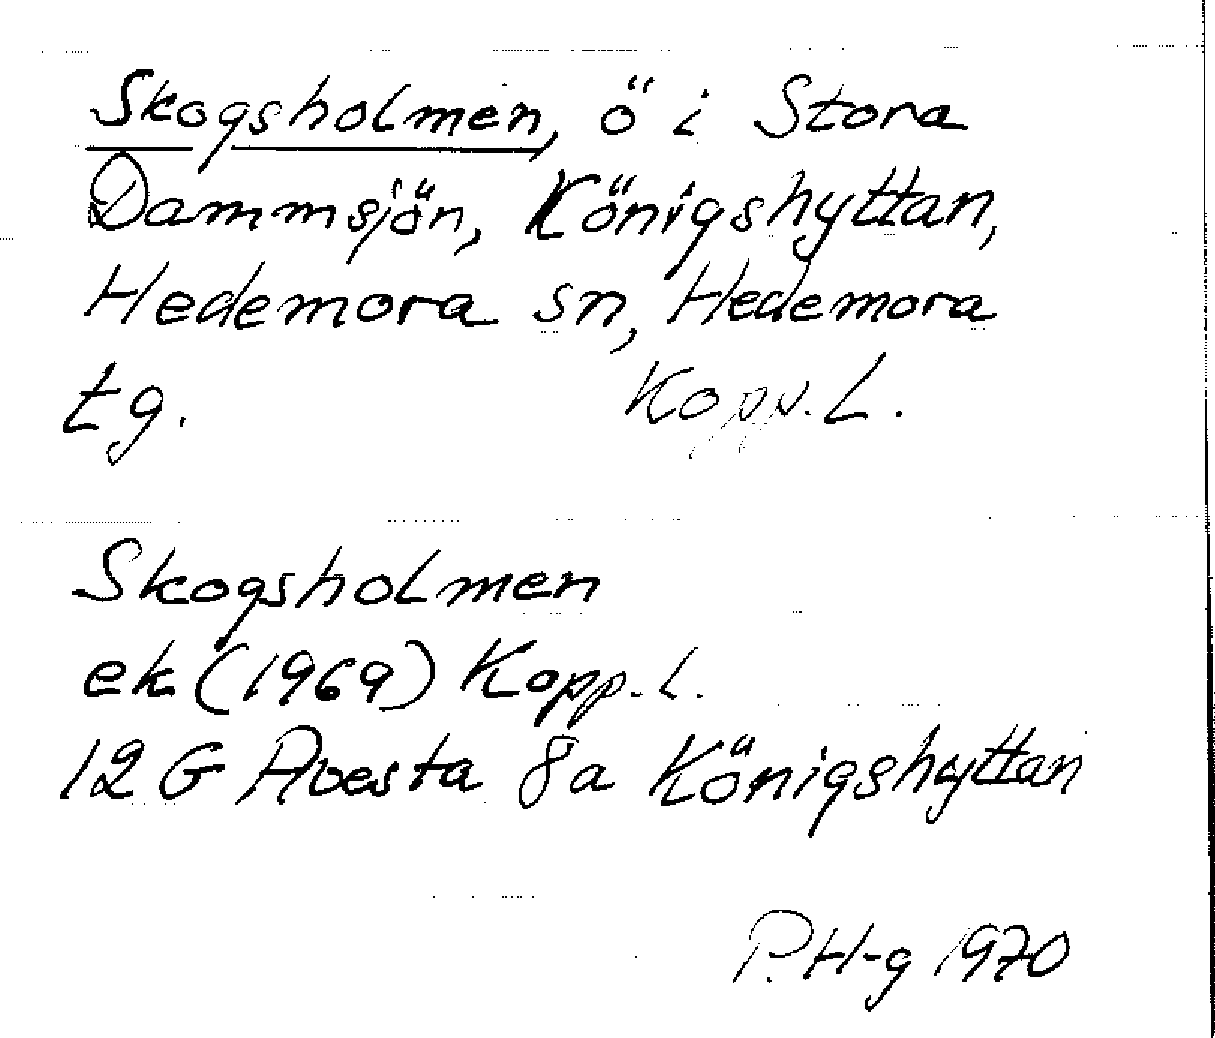 Skogsholmen, ö i Stora
Dammsjön, Königshyttan,
Hedemora sn, Hedemora
tg. Kopp. L.
Skogsholmen
ek (1969) Kopp. L.
12 G Avesta 8a Königshyttan
P. H-g 1970